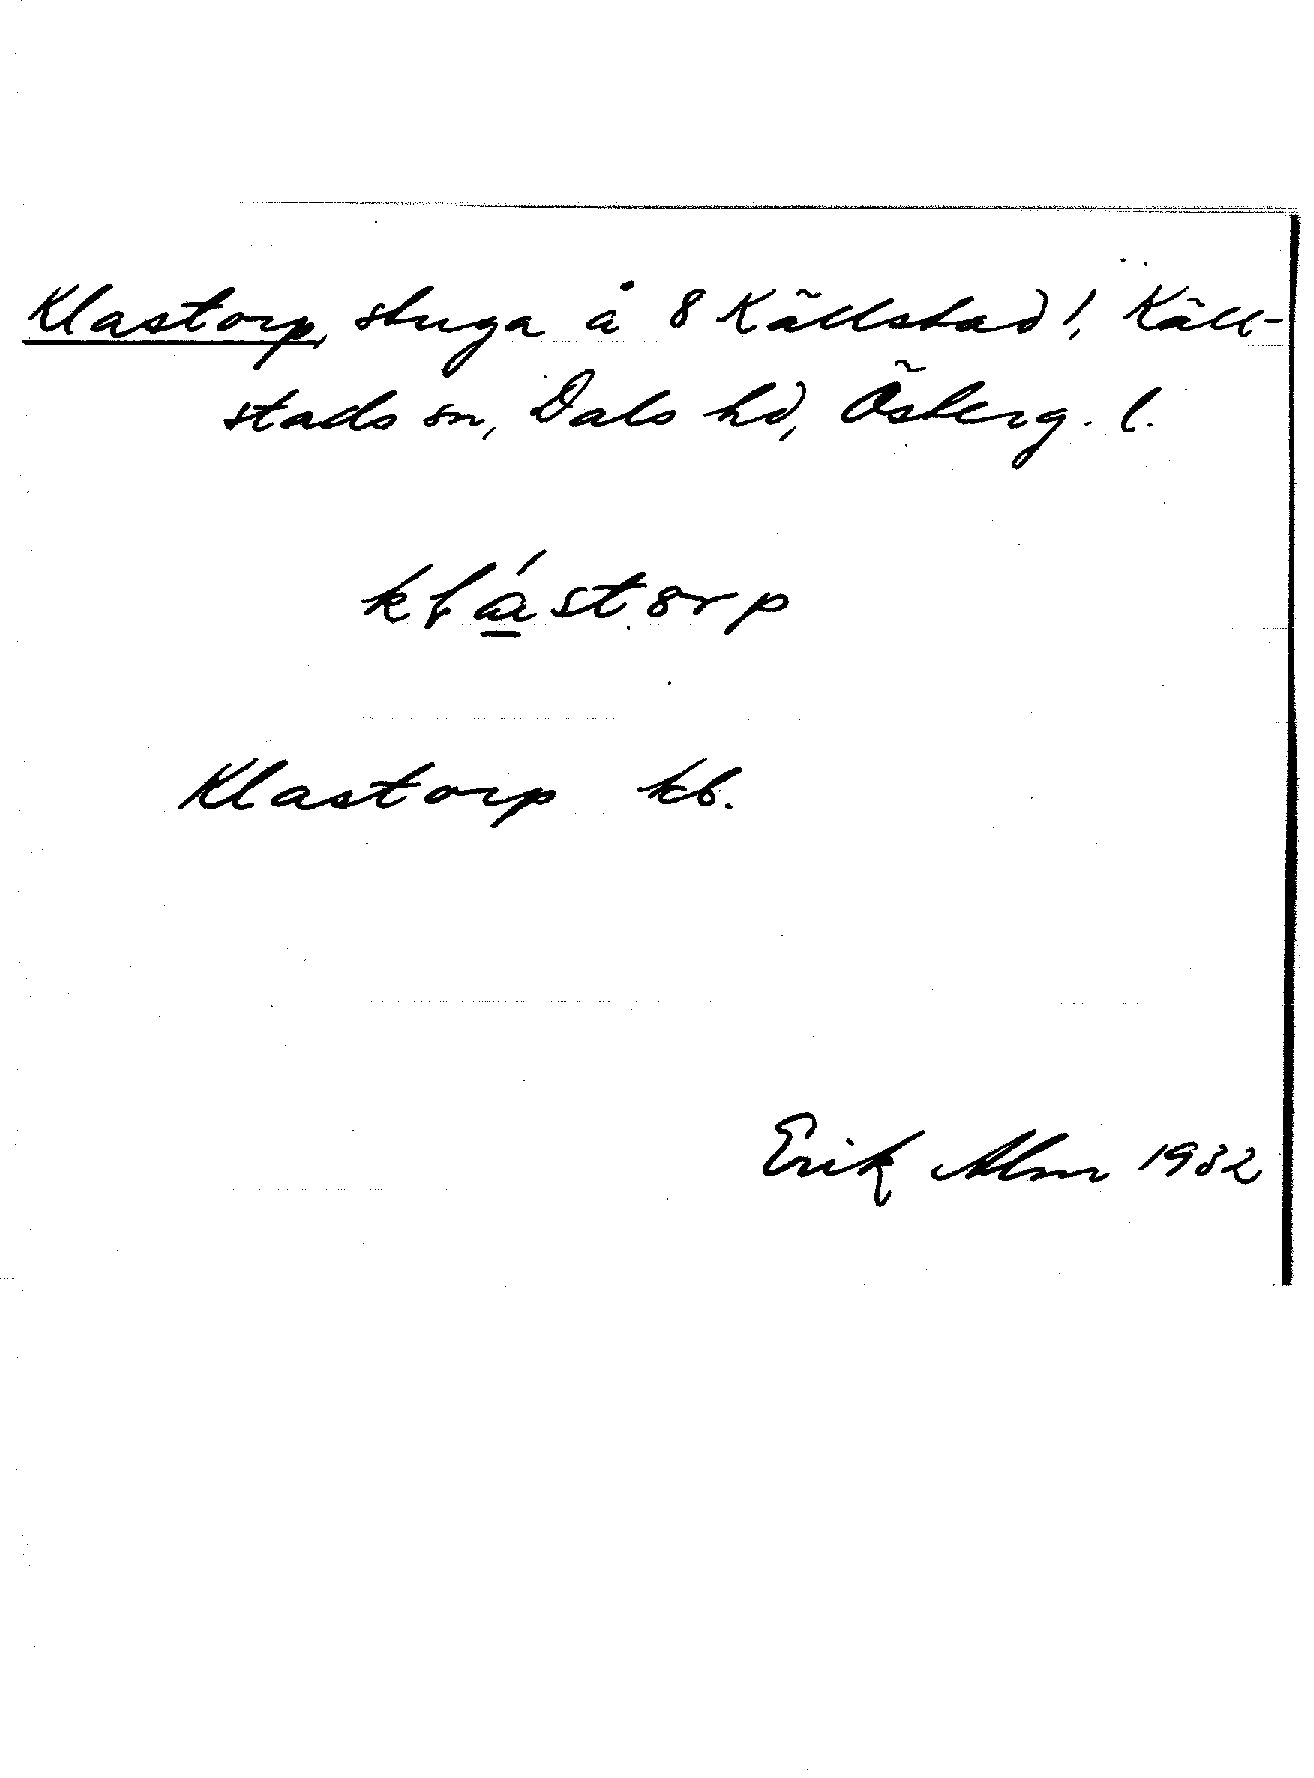 Klastorp, stuga å 8 Källstad!, Käll-
stads sn, Dals hd, Österg. l.
klástorp
Klastorp kb.
Erik Alm 1932